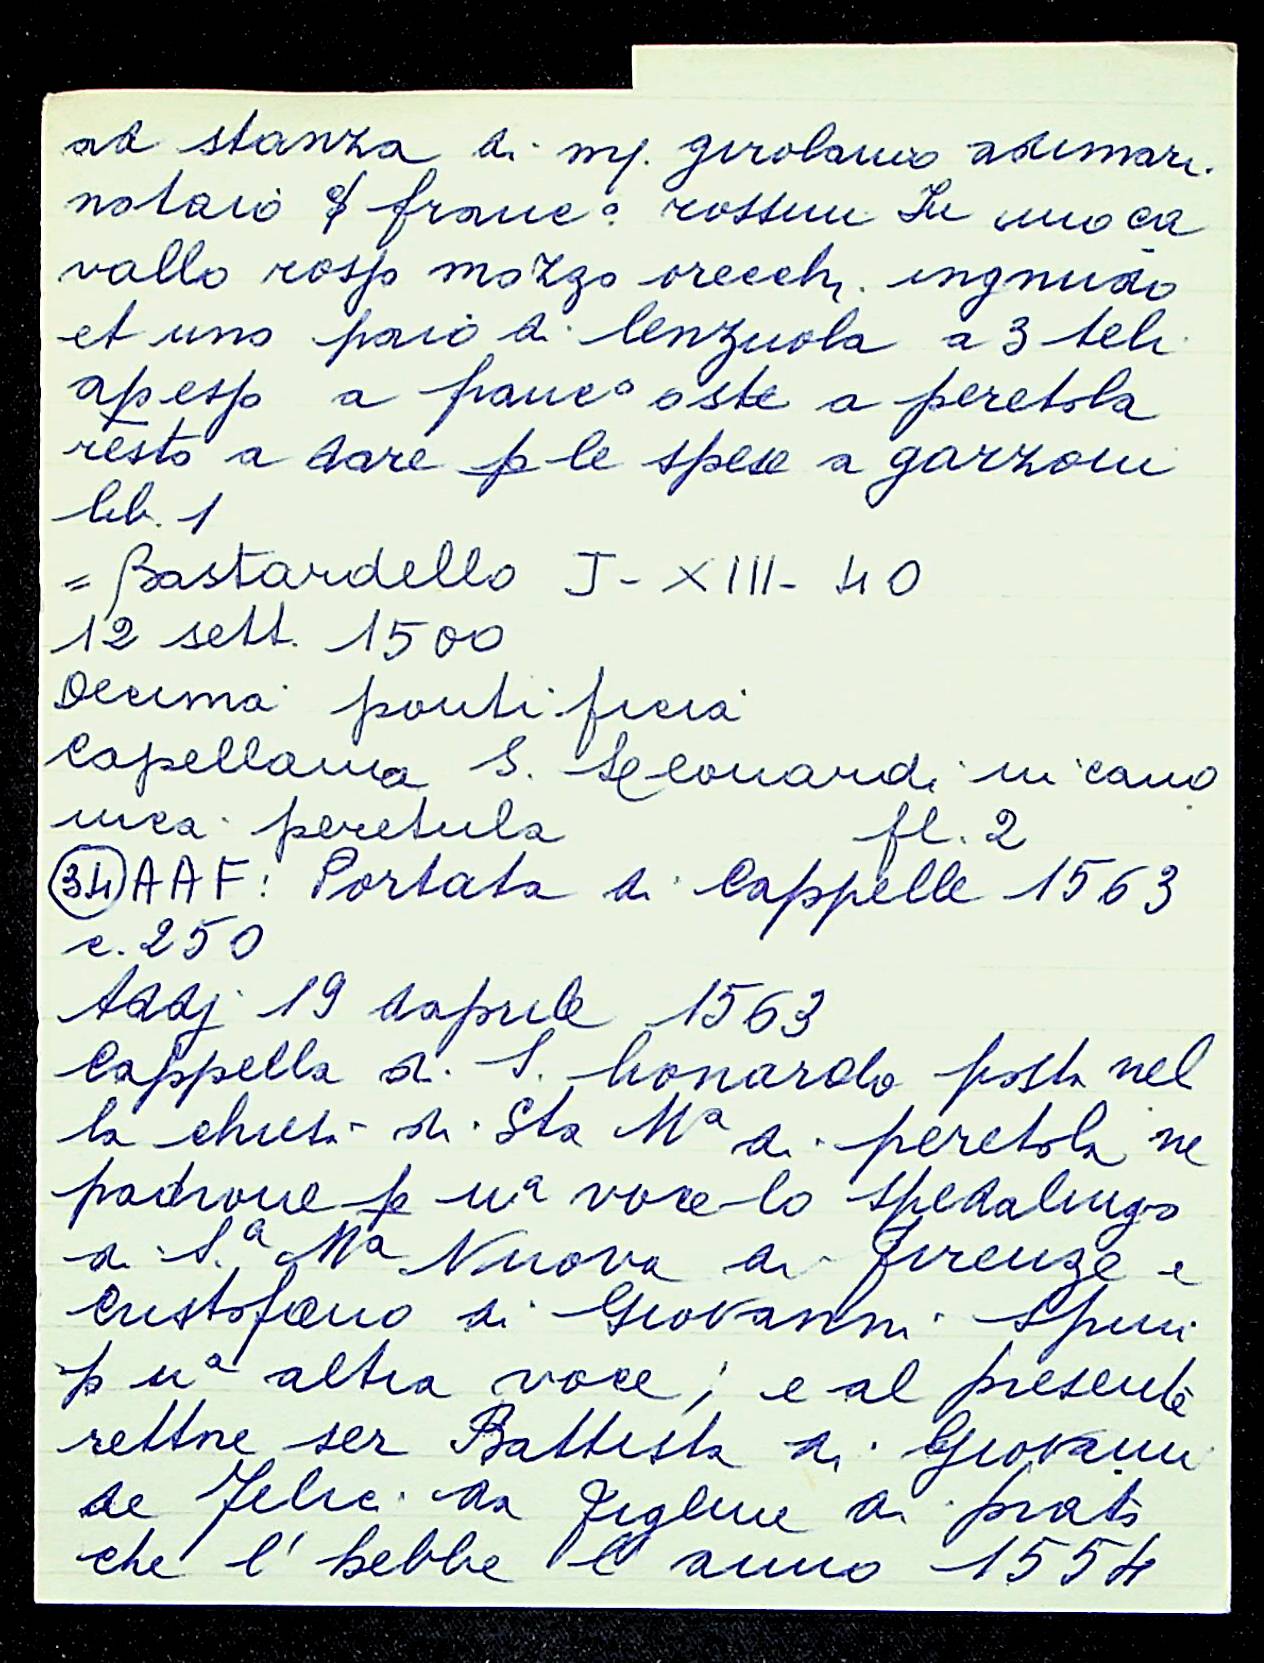 ad stanza di mſ. girolamo adimari
notaio & franc° rossini In uno ca
vallo rosso mozzo orecchi ingnudo
et uno paio di lenzuola a 3 teli
apesso a franc° oste a peretola
resto a dare p le spese a garzoni
lib. 1
= Bastardello I-XIII-40
12 sett. 1500
Decima pontificia
Capellania S. Leonardi in cano
nica peretula fl. 2
(34) AAF: Portata di Cappelle 1563
c. 250
Addj 19 daprile 1563
Cappella di S. Lionardo posta nel
la chiesa di Sta Mª di peretola ne
padrone p uª voce lo spedalingo
di S.ª Mª Nuova di Firenze e
Cristofano di Giovanni Spini
p uª altra voce; e al presente
rettore ser Battista di Giovanni
de Felici da Figline di prato
che l'hebbe l'anno 1554